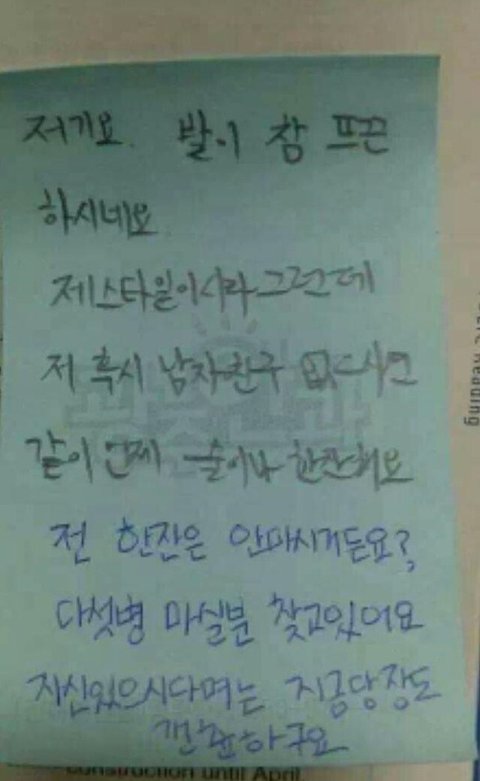 저기요. 발이 참 뜨끈
하시네요.
제스타일이시라그런데
저 혹시 남자친구 없으시면
같이 언제 술이나 한잔해요
전 한잔은 안마시거든요?
다섯병 마실분 찾고있어요
자신있으시다며는 지금당장도
갠찮하구요
construction until April
Reading